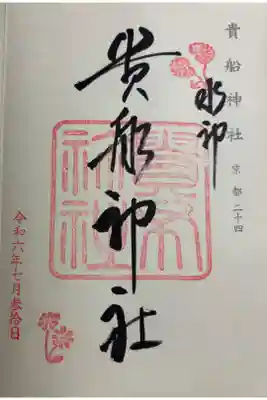 貴船神社 京都二十四
水神
貴船神社
貴船神社
令和六年七月参拾日